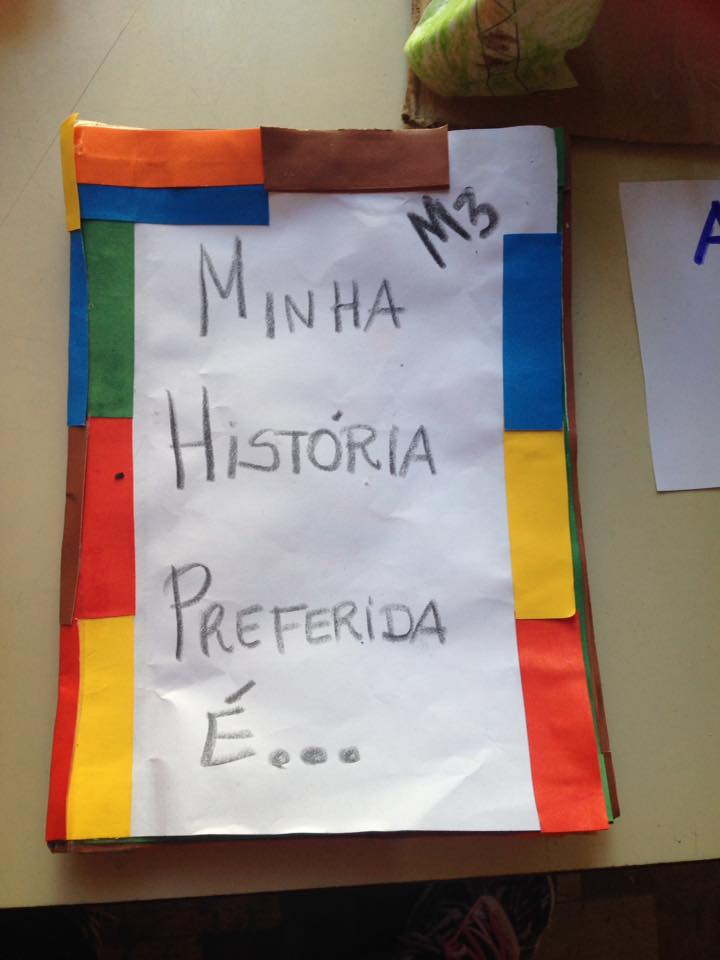 M3
MINHA
HISTÓRIA
PREFERIDA
É...
A